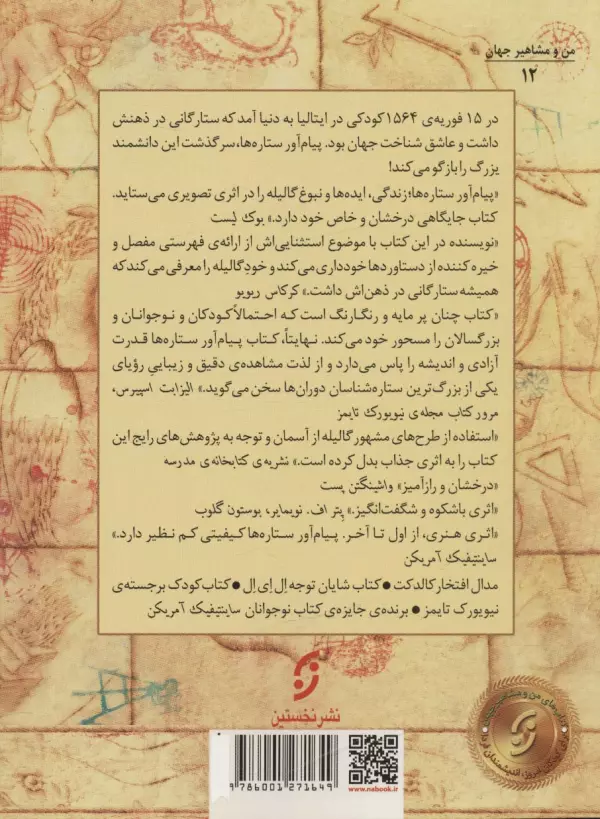 من و مشاهیر جهان
۱۲
در ۱۵ فوریه‌ی ۱۵۶۴ کودکی در ایتالیا به دنیا آمد که ستارگانی در ذهنش
داشت و عاشق شناخت جهان بود. پیام‌آور ستاره‌ها، سرگذشت این دانشمند
بزرگ را بازگو می‌کند!
«پیام‌آور ستاره‌ها؛ زندگی، ایده‌ها و نبوغ گالیله را در اثری تصویری می‌ستاید.
کتاب جایگاهی درخشان و خاص خود دارد.» بوک لیست
«نویسنده در این کتاب با موضوع استثنایی‌اش از ارائه‌ی فهرستی مفصل و
خیره کننده از دستاوردها خودداری می‌کند و خودِ گالیله را معرفی می‌کند که
همیشه ستارگانی در ذهن‌اش داشت.» کرکاس ریویو
«کتاب چنان پر مایه و رنگارنگ است که احتمالاً کودکان و نوجوانان و
بزرگسالان را مسحور خود می‌کند. نهایتاً، کتاب پیام‌آور ستاره‌ها قدرت
آزادی و اندیشه را پاس می‌دارد و از لذت مشاهده‌ی دقیق و زیباییِ رؤیای
یکی از بزرگ‌ترین ستاره‌شناسان دوران‌ها سخن می‌گوید.» الیزابت اسپیرس،
مرور کتاب مجله‌ی نیویورک تایمز
«استفاده از طرح‌های مشهور گالیله از آسمان و توجه به پژوهش‌های رایج این
کتاب را به اثری جذاب بدل کرده است.» نشریه‌ی کتابخانه‌ی مدرسه
«درخشان و رازآمیز» واشینگتن پست
«اثری باشکوه و شگفت‌انگیز.» پیتر اف. نویمایر، بوستون گلوب
«اثری هنری، از اول تا آخر. پیام‌آور ستاره‌ها کیفیتی کم نظیر دارد.»
ساینتیفیک آمریکن
مدال افتخار کالدکت • کتاب شایان توجه اِل اِی اِل • کتاب کودک برجسته‌ی
نیویورک تایمز • برنده‌ی جایزه‌ی کتاب نوجوانان ساینتیفیک آمریکن
نشر نخستین
9 786001 271649
www.nabook.ir